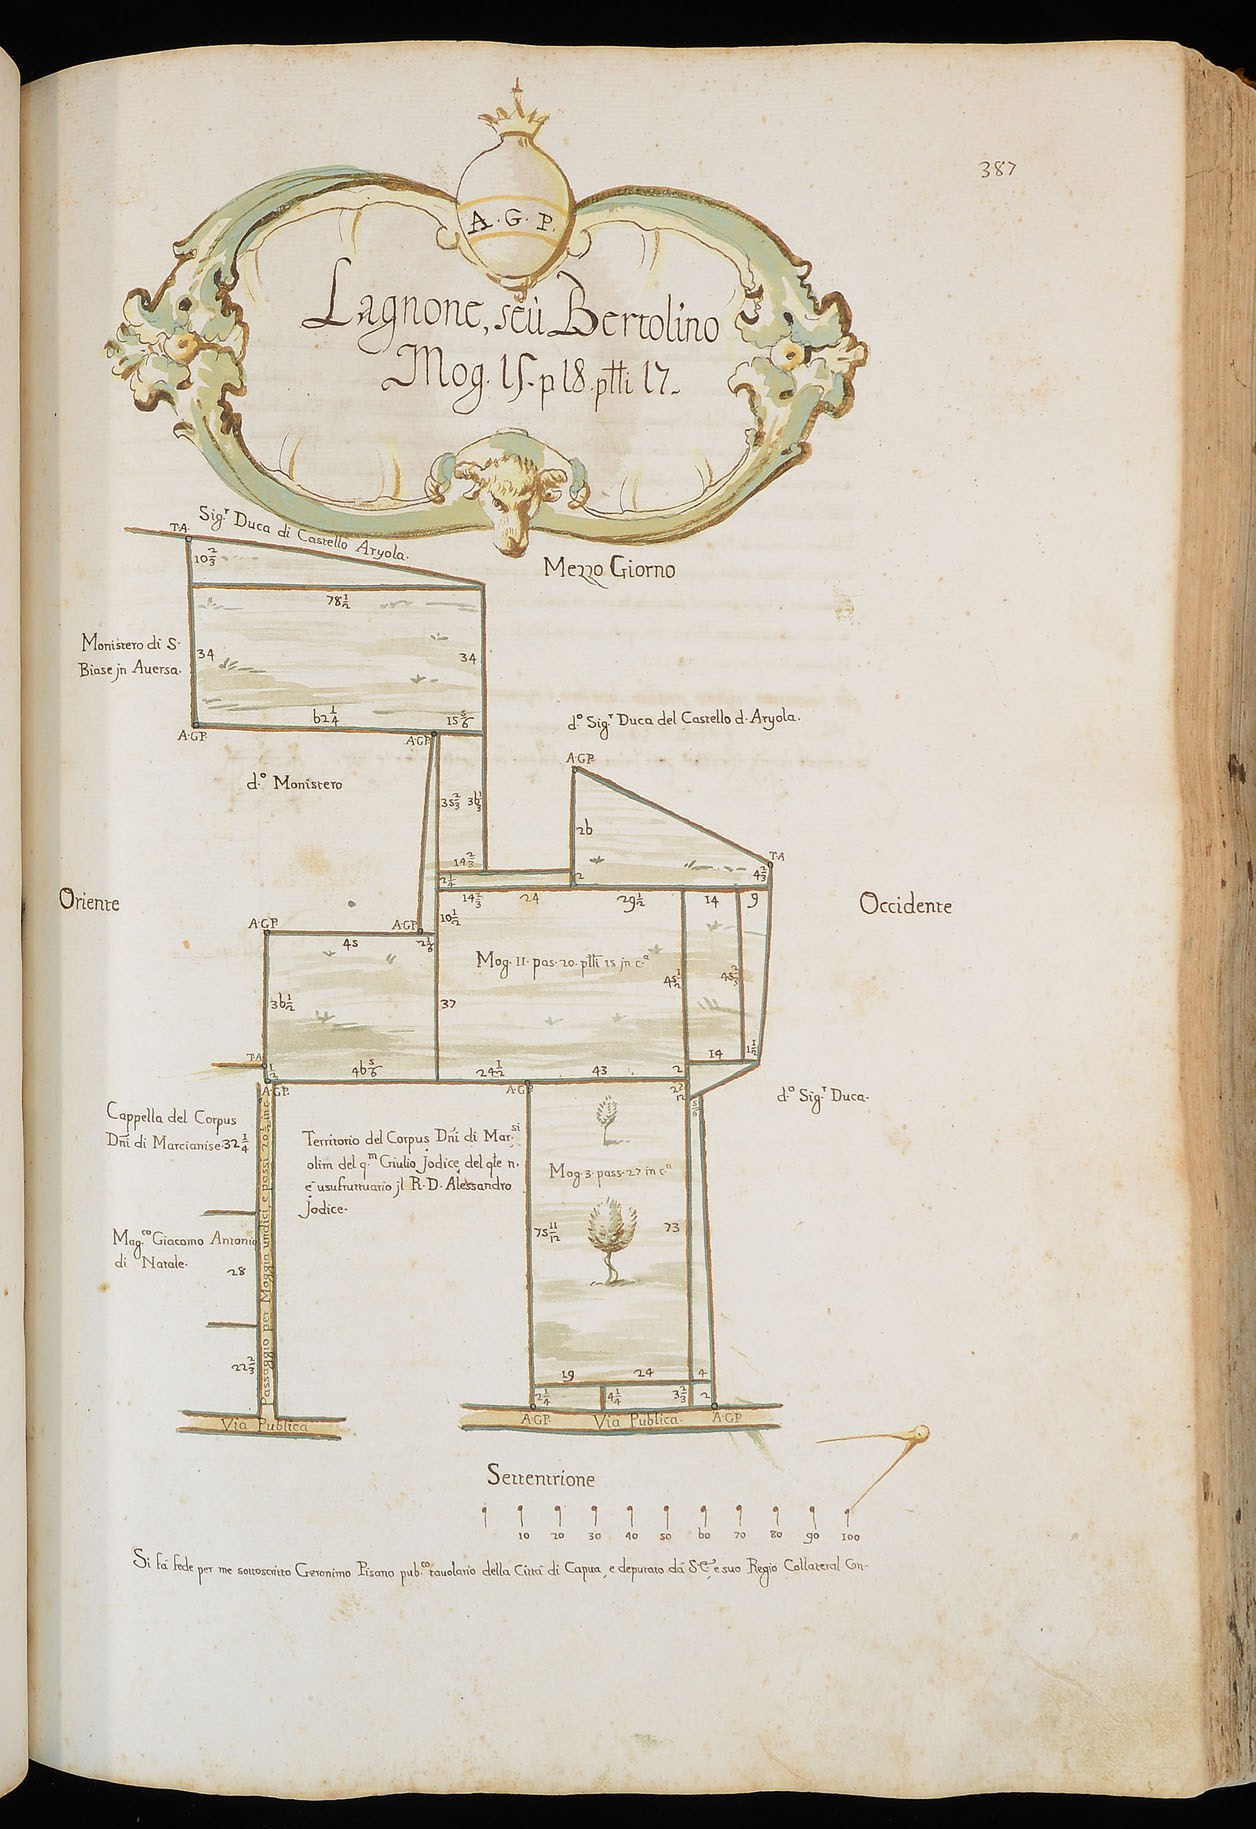 387
A. G. P.
Lagnone, seù Bertolino
Mog. 15. p 18. ptti 17.
Sig.r Duca di Castello Aryola.
T.A.
10 2/3
Mezzo Giorno
78 1/2
Monistero di S.
Biase jn Auersa.
34
34
62 1/4
15 5/6
A.G.P.
A.G.P.
d.o Sig.r Duca del Castello d. Aryola.
A.G.P.
d.o Monistero
35 2/3
36 1/3
26
14 2/3
T.A
4 2/3
2 1/4
2
14 2/3
24
29 1/2
14
9
Oriente
Occidente
10 1/2
A.G.P.
A.G.P.
45
2 1/6
Mog. 11. pas. 20. ptti 15 jn c.a
45 1/2
45 2/3
36 1/2
37
T.A
1/2
46 5/6
24 1/2
43
2
14
1 1/2
A.G.P.
A.G.P.
2 7/12
5/6
d.o Sig.r Duca.
Cappella del Corpus
Dñi di Marcianise. 32 1/4
Territorio del Corpus Dñi di Mar.si
olim del q.m Giulio Jodice, del qle n.
è usufruttuario jl R. D. Alessandro
Jodice.
Mog. 3. pass. 27 in c.a
Mag.co Giacomo Antonio
di Natale.
28
Passaggio per Moggia undici, e passi 20 1/2 in c.a
75 11/12
73
22 2/3
19
24
4
2 1/4
4 1/4
3 2/3
2
Via Publica
A.G.P.
Via Publica.
A.G.P.
Settentrione
10 20 30 40 50 60 70 80 90 100
Si fà fede per me sottoscritto Geronimo Pisano pub.co tauolario della Città di Capua, e deputato dà S. E. e suo Regio Collateral Con-